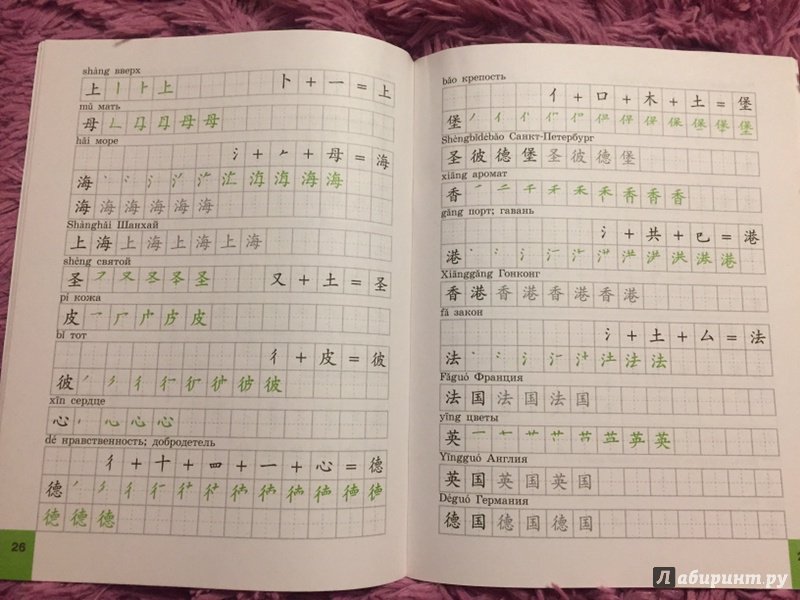 shàng вверх
上 丨 卜 上 卜 + 一 = 上
mǔ мать
母 母 母
hǎi море
氵 + 𠂉 + 母 = 海
海 丶 冫 氵 海 海
海 海 海 海 海 海
Shànghǎi Шанхай
上 海 上 海 上 海 上 海
shèng святой
圣 フ 又 圣 又 + 土 = 圣
pí кожа
皮 一 厂 皮
bǐ тот
彳 + 皮 = 彼
彼 丿 彳 彼 彼
xīn сердце
心 丶 心 心
dé нравственность; добродетель
彳 + 十 + 罒 + 一 + 心 = 德
德 丿 彳
德 德 德
26
bǎo крепость
亻 + 口 + 木 + 土 = 堡
堡 丿 亻 保 堡
Shèngbǐdébǎo Санкт-Петербург
圣 彼 德 堡 圣 彼 德 堡
xiāng аромат
香 一 二 千 禾 香 香
gǎng порт; гавань
氵 + 共 + 巳 = 港
港 丶 冫 氵 洪 港
Xiānggǎng Гонконг
香 港 香 港 香 港 香 港
fǎ закон
氵 + 土 + 厶 = 法
法 丶 冫 氵 法 法
Fǎguó Франция
法 国 法 国 法 国
yīng цветы
英 一 艹 英 英
Yīngguó Англия
英 国 英 国 英 国
Déguó Германия
德 国 德 国 德 国
Лабиринт.ру